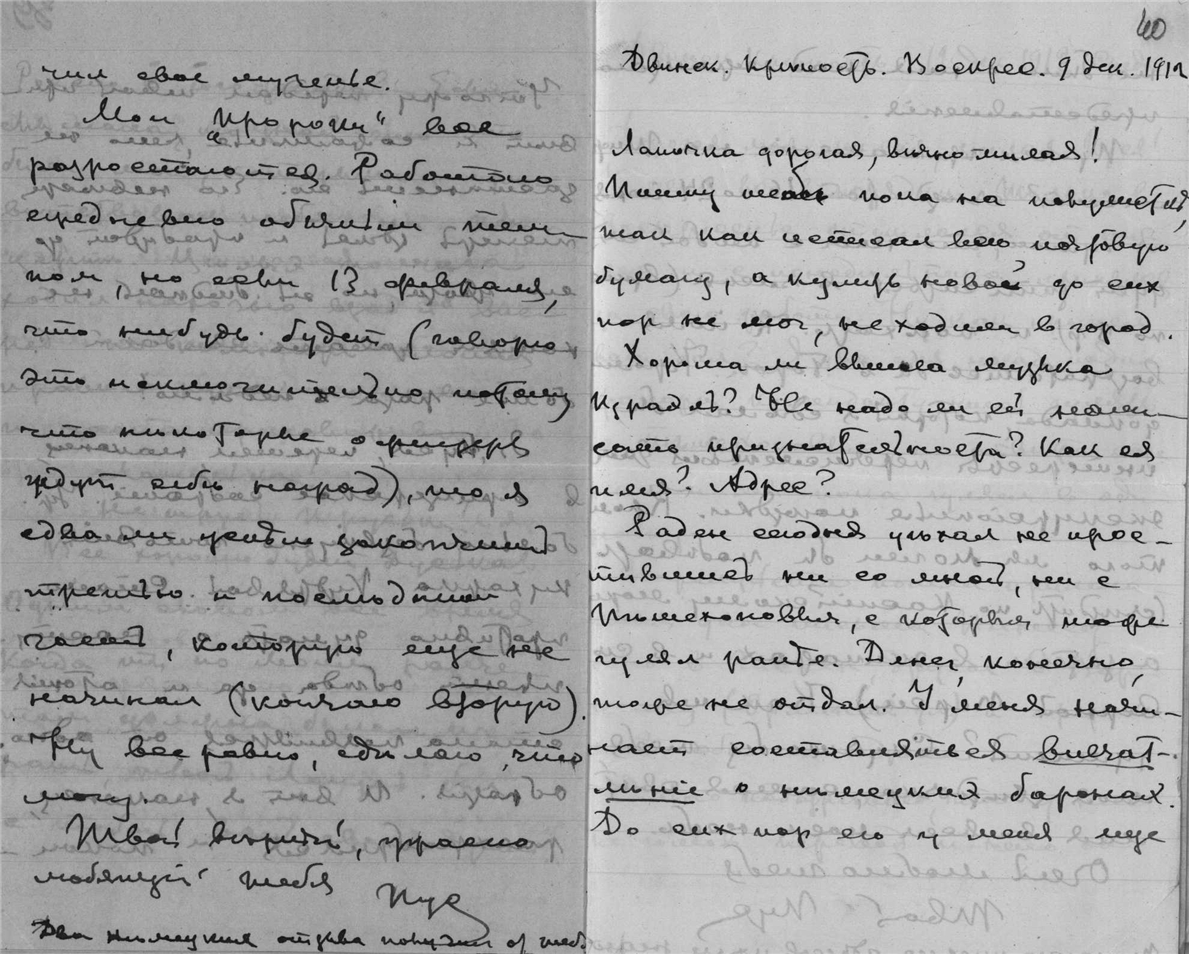 чил свое мученье.
Мои „пророки“ все
разростаются. Работаю
ежедневно обычным тем-
пом, но если 13 февраля,
что нибудь будет (говорю
это исключительно потому
что некоторые офицеры
ждут себе наград), то я
едва ли успѣю закончить
третью и послѣднюю
часть, которую еще не
начинал (кончаю вторую).
Ну все равно, сдѣлаю, что
могу.
Твой вѣрный, ужасно
любящий тебя Нус
Два нѣмецких отзыва получил от тебя
40
Двинск. Крѣпость. Воскрес. 9 дек. 1912
Лапочка дорогая, вѣчно милая!
Пишу тебѣ пока на
так как исписал всю почтовую
бумагу, а купить новой до сих
пор не мог, не ходили в город.
Хороша ли вышла музыка
Не надо ли ей напи-
сать признательность? Как ея
имя? Адрес?
Раден сегодня уѣхал не прос-
тившись ни со мной, ни с
с которым тоже
гулял раньше. Денег, конечно,
тоже не отдал. У меня начи-
нает составляться впечат-
лѣнiе о нѣмецких баронах.
До сих пор его у меня еще